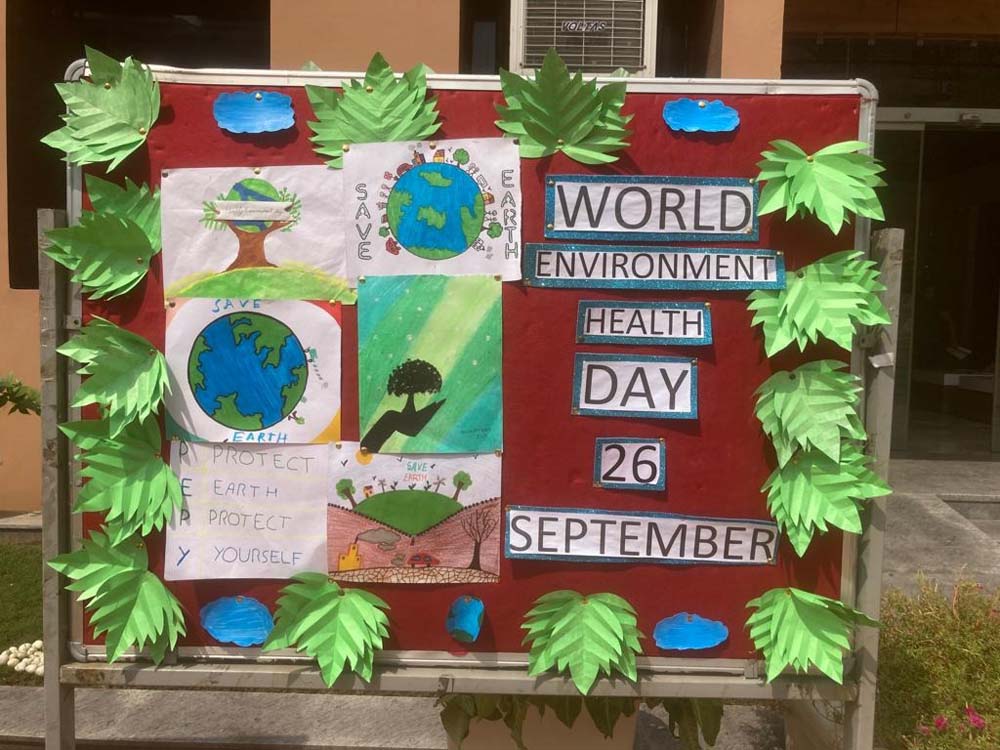 VOLTAS
SAVE
EARTH
SAVE
EARTH
P PROTECT
E EARTH
P PROTECT
Y YOURSELF
SAVE
EARTH
WORLD
ENVIRONMENT
HEALTH
DAY
26
SEPTEMBER